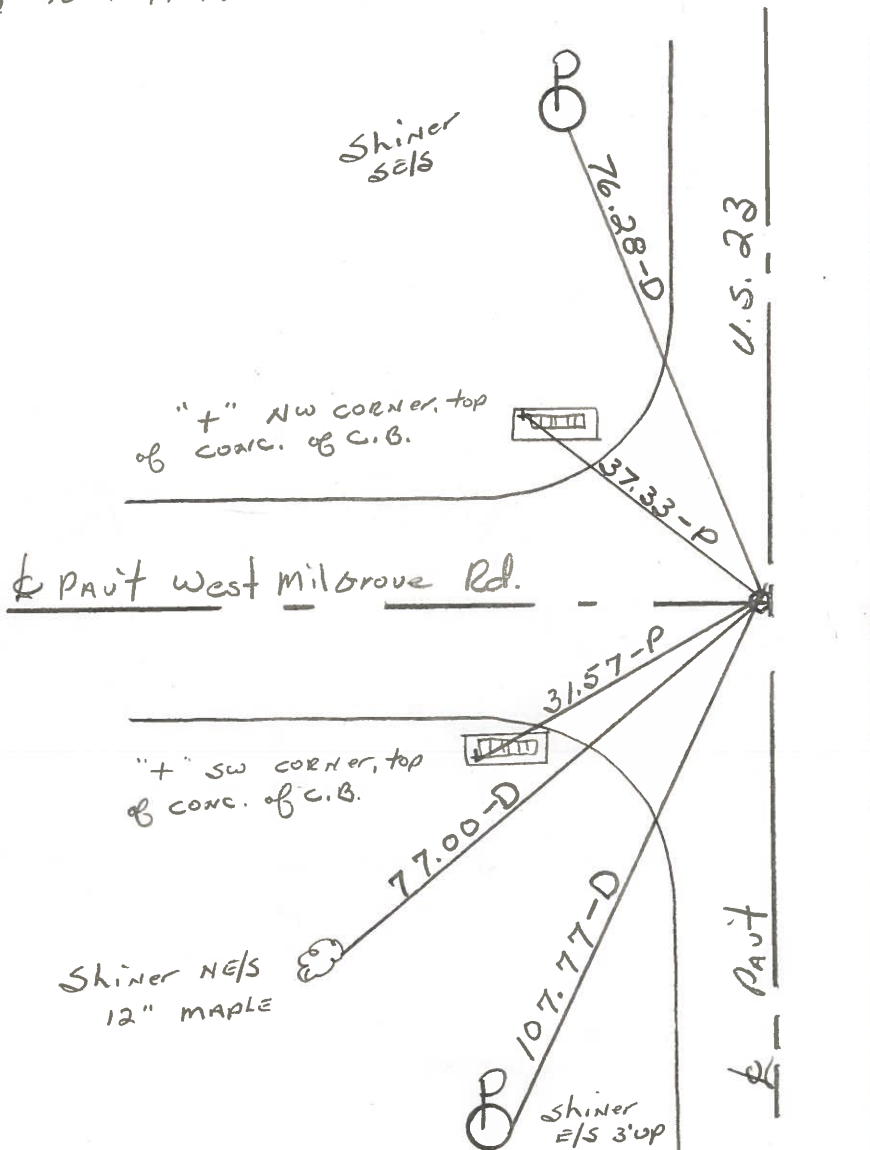 Shiner
SE/S
P
76.28-D
U.S. 23
"+" NW CORNER, top
of CONC. of C.B.
37.33-P
℄ PAV't West Milgrove Rd.
31.57-P
"+" SW CORNER, top
of CONC. of C.B.
77.00-D
107.77-D
℄ PAV't
Shiner NE/S
12" MAPLE
P
Shiner
E/S 3'UP